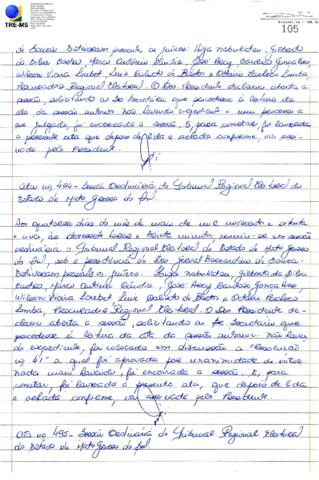 TRE-MS
105
de Souza. Estiveram presente os juízes: Higa Nabukatsu, Gilberto
da Silva Castro, Marco Antônio Cândia, José Arcy Cardoso Gonçalves,
Wilson Vieira Loubet, Luiz e Otávio Pacheco Lomba,
Procuradora Regional Eleitoral. O Des. Presidente declarou aberta a
sessão, solicitando ao Sr. Secretário que procedesse à leitura da
ata da sessão anterior. Não havendo expediente nem processo a
ser julgado, foi encerrada a sessão. E, para constar foi lavrada
a presente ata que depois de lida e achada conforme, vai assi-
nada pelo Presidente.
Ata nº 494 - Sessão Ordinária do Tribunal Regional Eleitoral do
Estado de Mato Grosso do Sul.
Aos quatorze dias do mês de maio de mil novecentos e oitenta
e seis, às dezessete horas e trinta minutos, reuniu-se em sessão
ordinária o Tribunal Regional Eleitoral do Estado de Mato Grosso
do Sul, sob a presidência do Des. Bernardino de Souza.
Estiveram presentes os juízes: Higa Nabukatsu, Gilberto da Silva
Castro, Marco Antônio Cândia, José Arcy Cardoso Gonçalves,
Wilson Vieira Loubet, Luiz e Otávio Pacheco
Lomba, Procuradora Regional Eleitoral. O Des. Presidente de-
clarou aberta a sessão, solicitando ao Sr. Secretário que
procedesse à leitura da ata da sessão anterior. Não havendo
expediente, foi colocada em discussão a "Resolução
nº 41" a qual foi aprovada por unanimidade de votos.
Nada mais havendo, foi encerrada a sessão. E, para
constar, foi lavrada a presente ata, que depois de lida
e achada conforme, vai assinada pelo Presidente.
Ata nº 495 - Sessão Ordinária do Tribunal Regional Eleitoral
do Estado de Mato Grosso do Sul.